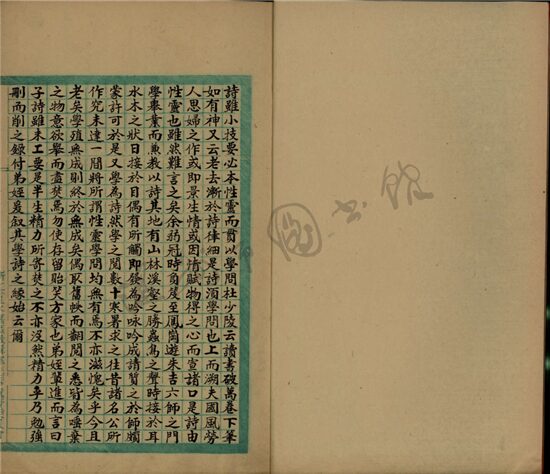 詩雖小技要必本性靈而貫以學問杜少陵云讀書破萬卷下筆
如有神又云老去漸於詩律細是詩須學問也上而溯夫國風勞
人思婦之作或即景生情或因情賦物得之心而宣諸口是詩由
性靈也雖然難言之矣余弱冠時負笈至鳳崗遊朱吉六師之門
學舉業而兼教以詩其地有山林溪壑之勝蟲鳥之聲時接於耳
水木之狀日接於目偶有所觸即發為吟咏吟成請質之於師頗
蒙許可於是又學為詩然學之閱數十寒暑求之往昔諸名公所
作究未達一間將所謂性靈學問均無有焉不亦滋愧矣乎今且
老矣學殖無成則終於無成矣偶取舊帙而翻閱之悉皆為嘔棄
之物意欲舉而盡焚焉勿使存留貽笑方家也弟姪輩進而言曰
子詩雖未工要是半生精力所寄焚之不亦沒然精力乎乃勉強
刪而削之錄付弟姪爰叙其學詩之緣始云爾